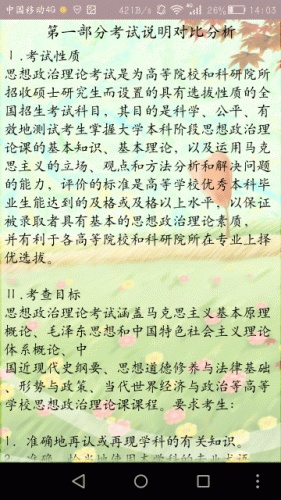 中国移动4G 421B/s 26% 14:03
第一部分考试说明对比分析
Ⅰ.考试性质
思想政治理论考试是为高等院校和科研院所
招收硕士研究生而设置的具有选拔性质的全
国招生考试科目，其目的是科学、公平、有
效地测试考生掌握大学本科阶段思想政治理
论课的基本知识、基本理论，以及运用马克
思主义的立场、观点和方法分析和解决问题
的能力，评价的标准是高等学校优秀本科毕
业生能达到的及格或及格以上水平，以保证
被录取者具有基本的思想政治理论素质，
并有利于各高等院校和科研院所在专业上择
优选拔。
II.考查目标
思想政治理论考试涵盖马克思主义基本原理
概论、毛泽东思想和中国特色社会主义理论
体系概论、中
国近现代史纲要、思想道德修养与法律基础
、形势与政策、当代世界经济与政治等高等
学校思想政治理论课课程。要求考生：
1. 准确地再认或再现学科的有关知识。
2. 准确、恰当地使用本学科的专业术语